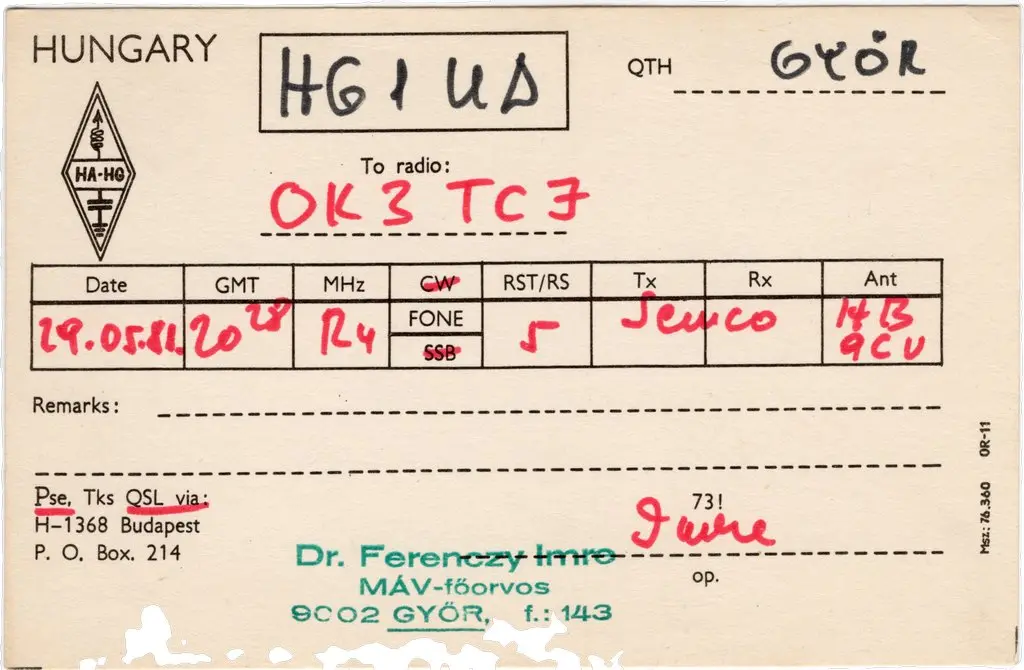 HUNGARY
HG1UD
QTH GYŐR
HA-HG
To radio:
OK3TCJ
Date GMT MHz CW RST/RS Tx Rx Ant
FONE
SSB
29.05.81. 20 28 R4 5 Semco HB
9CV
Remarks:
Pse, Tks QSL via:
H-1368 Budapest
P. O. Box. 214
73!
Imre
op.
Dr. Ferenczy Imre
MÁV-főorvos
9002 GYŐR, f.: 143
Msz.: 76.360 OR-11